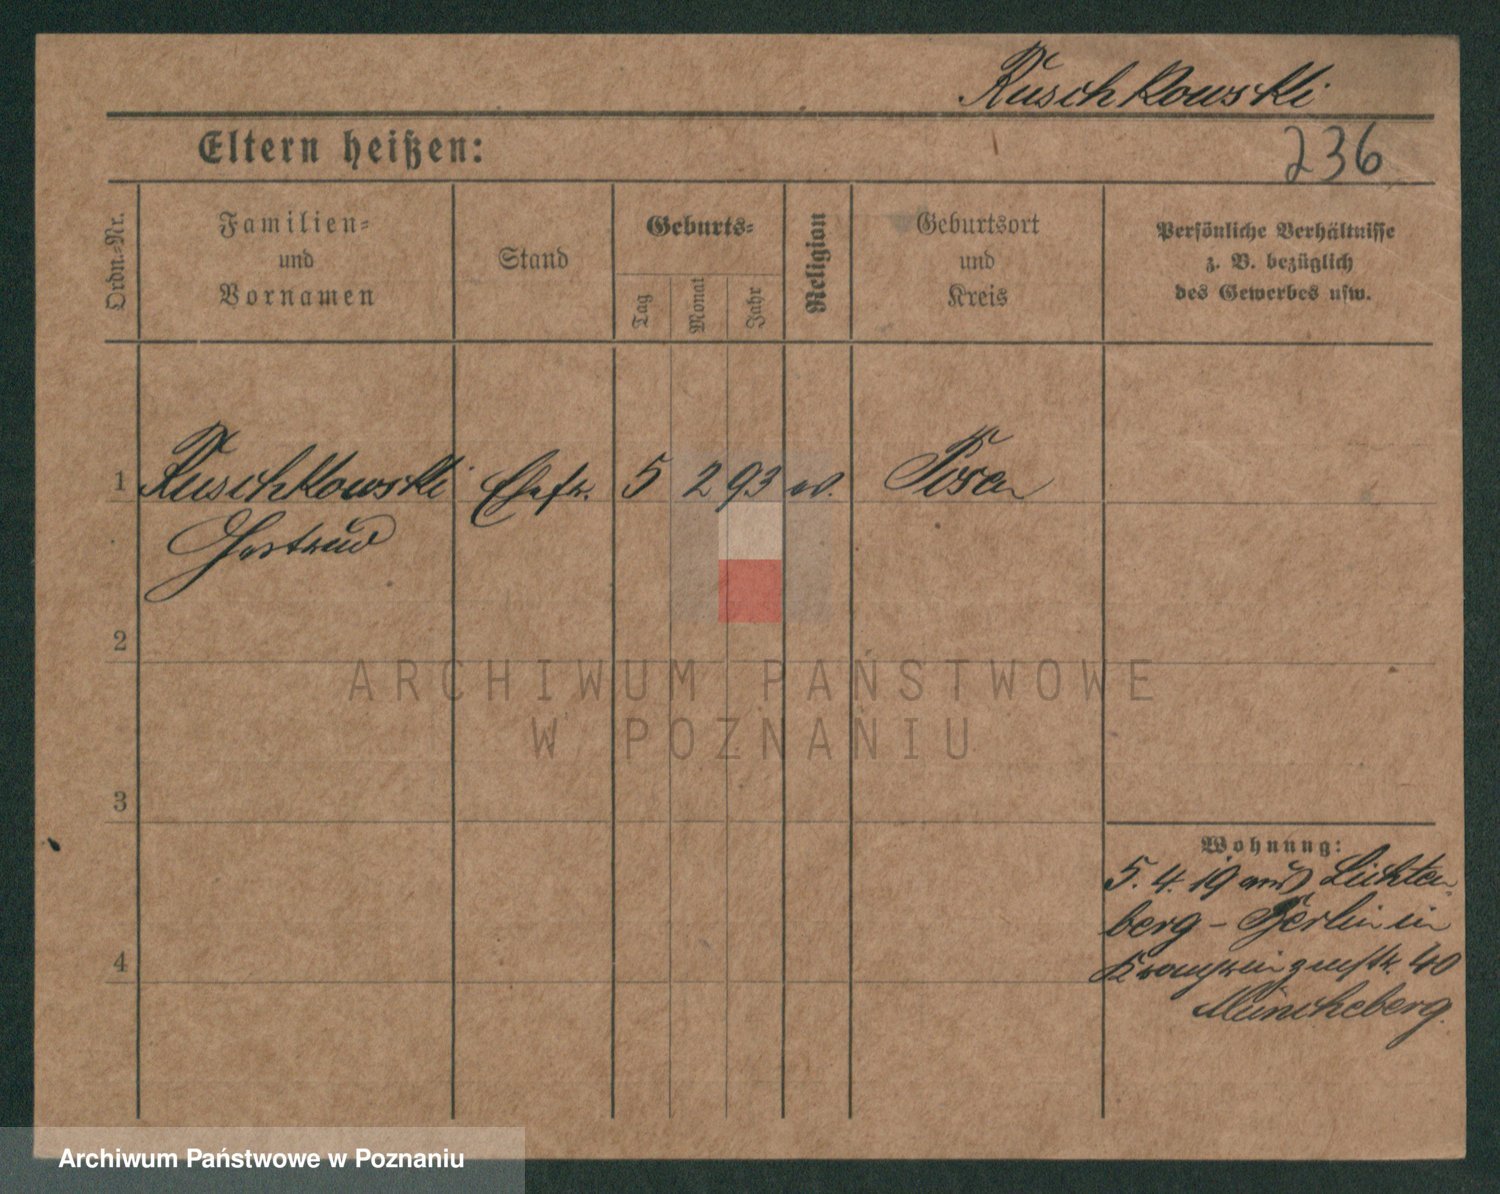 Ruschkowski
Eltern heißen:
236
Ordn.-Nr.
Familien-
und
Vornamen
Stand
Geburts-
Tag
Monat
Jahr
Religion
Geburtsort
und
Kreis
Persönliche Verhältnisse
z. B. bezüglich
des Gewerbes usw.
1 Ruschkowski Ehefr. 5 2 93 ev. Posen
Gertrud
2
3
4
ARCHIWUM PAŃSTWOWE
W POZNANIU
Wohnung:
5. 4. 19 aus Lichten
berg - Berlin in
Kronprinzenstr. 40
Müncheberg.
Archiwum Państwowe w Poznaniu